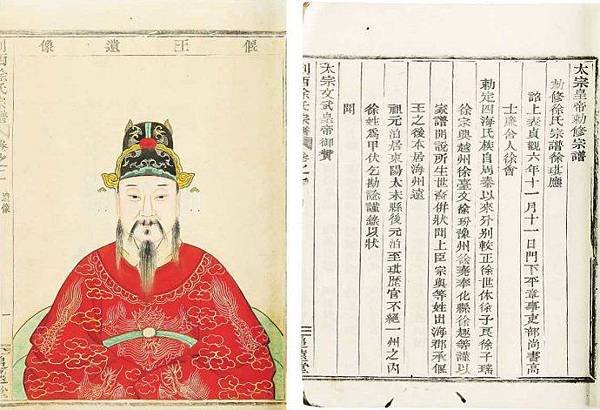 偃王遺像
遺像
一
太宗皇帝勅修宗譜
勅修徐氏宗譜徐琪廳
詔上表貞觀六年十一月十一日門下平章事吏部尚書高
士廉舍人徐會
勅定四海氏族自周秦以來外別較正徐世休徐子艮徐子瑞
徐宗興越州徐臺文徐玢豫州徐堯奉化縣徐趣等謹以
家譜開說所生世裔併狀聞上臣宗興等姓出海郡承偃
王之後本居海州遠
祖元洎居東陽太末縣後元洎至琪歷官不絕一州之內
徐姓爲甲伏乞勘詮謹錄以狀
聞
太宗文武皇帝御贊
徐氏宗譜